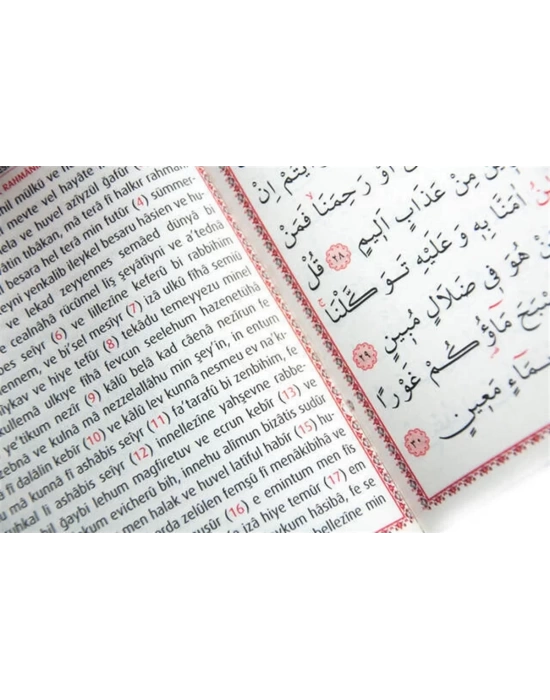 RAHMANİ
mil mülkü ve
meyte vel hayâte
ve huvel azîyzül ğafûr (4)
tıbâkan, mâ terâ fî halkır rahmân
besara hel terâ min futûr (4) sümmer-
yenkalib ileykel besaru hâsien ve hu-
ve lekad zeyyennes semâed dünyâ bi
ve cealnâhâ rucûmel liş şeyâtîyni ve a'tednâ
seıyr (6) ve lillezîne keferû bi rabbihim
ve bi'sel mesîyr (7) izâ ulkû fîhâ semiû
ve hiye tefûr (8) tekâdu temeyyezu minel
ulkıye fîhâ fevcun seelehum hazenetühâ
e'tikum nezîr (9) kâlû belâ kad câenâ nezîrun fe
ve kulnâ mâ nezzelallâhu min şey'in, in entum
fî dalâlin kebîr (10) ve kâlû lev kunnâ nesmeu ev na'k-
mâ kunnâ fî ashâbis seıyr (11) fa'terafû bi zenbihim, fe
fi ashâbis seıyr (12) innellezîne yahşevne rabbe-
bil ğaybi lehum mağfiretuv ve ecrun kebîr (13) ve
evicherû bih, innehu alîmun bizâtis sudûr
men halak ve huvel latîful habîr (15) hu-
zelûlen femşû fî menâkibihâ ve
(16) e emintum men fis
izâ hiye temûr (17) em
hâsibâ, fe se
اَوْ رَحِمَنَا فَمَنْ
مِنْ عَذَابٍ اَلِيمٍ ٢٨ قُلْ
اٰمَنَّا بِهٖ وَعَلَيْهِ تَوَكَّلْنَا
هُوَ فٖى ضَلَالٍ مُبٖينٍ ٢٩
مَاؤُ۬كُمْ غَوْرًا
مَعٖينٍ ٣٠